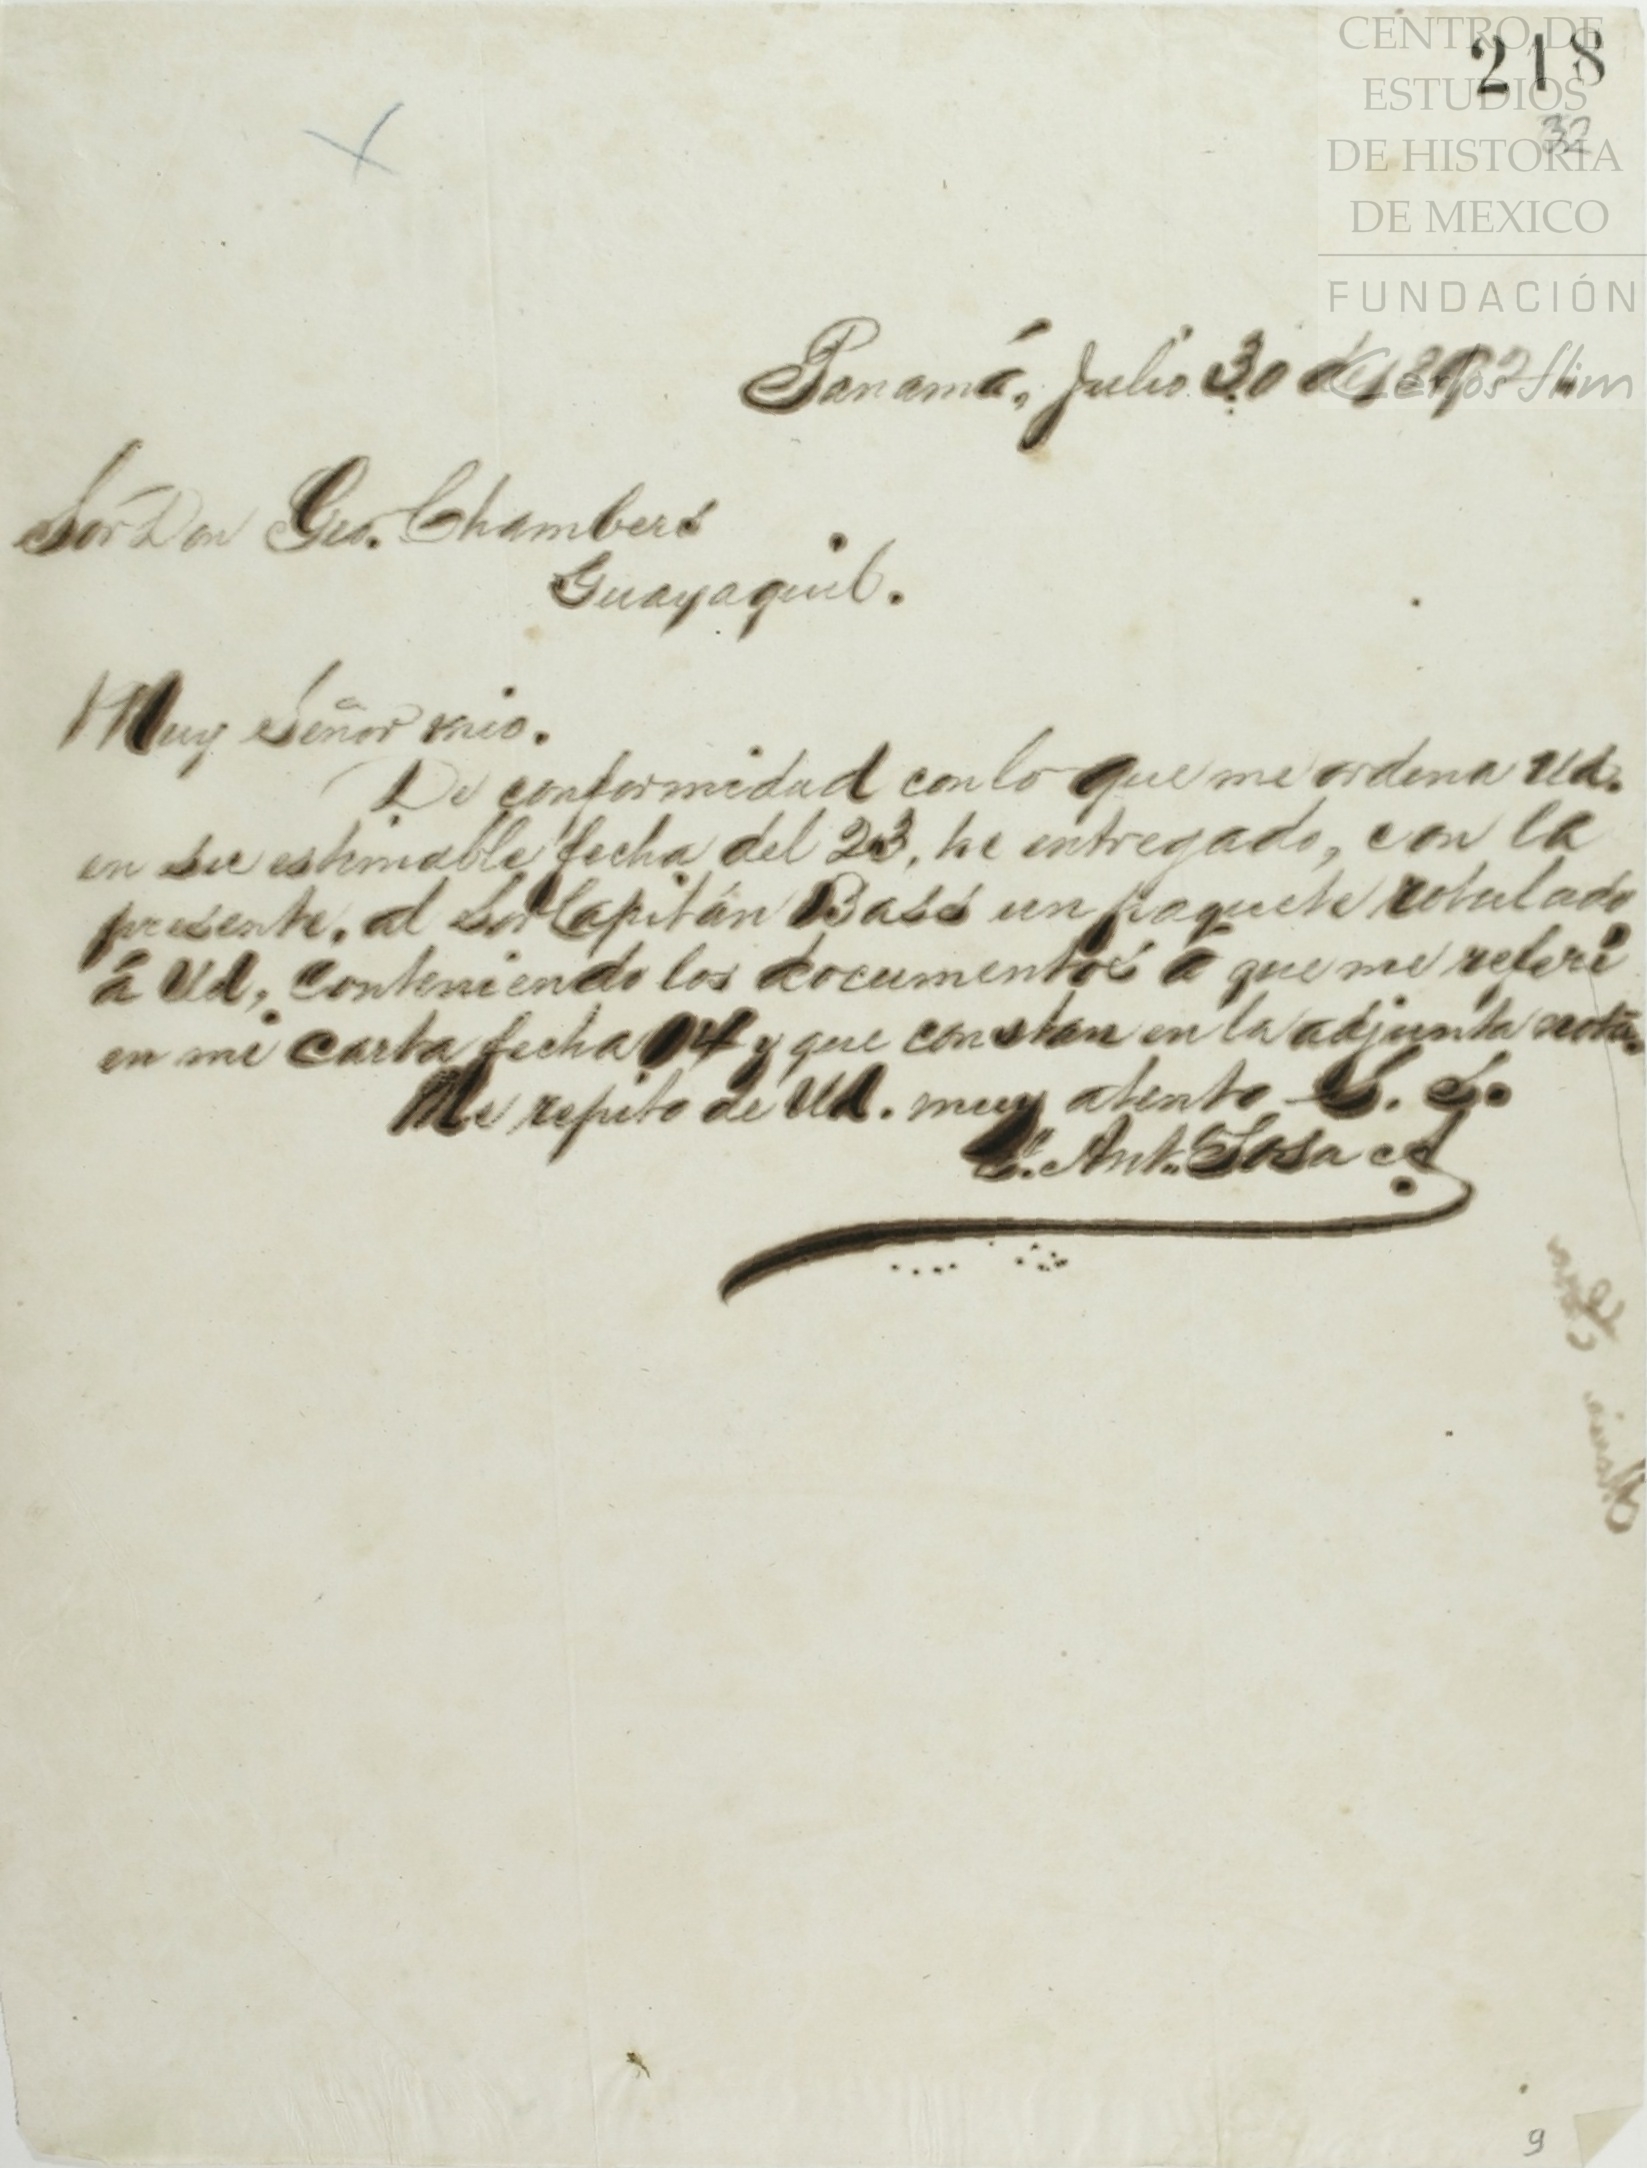 CENTRO DE
ESTUDIOS
DE HISTORIA
DE MEXICO
FUNDACIÓN
Carlos Slim
218
32
Panamá, Julio 30 de
Sor Don Geo. Chambers
Guayaquil.
Muy Señor mio.
De conformidad con lo que me ordena Ud.
en su estimable fecha del 23, he entregado, con la
presente, al Sor Capitán Bass un paquete rotulado
á Ud, conteniendo los documentos á que me referí
en mi carta fecha 14 y que constan en la adjunta nota.
Me repito de Ud. muy atento S. S.
Ant. Sosa
9